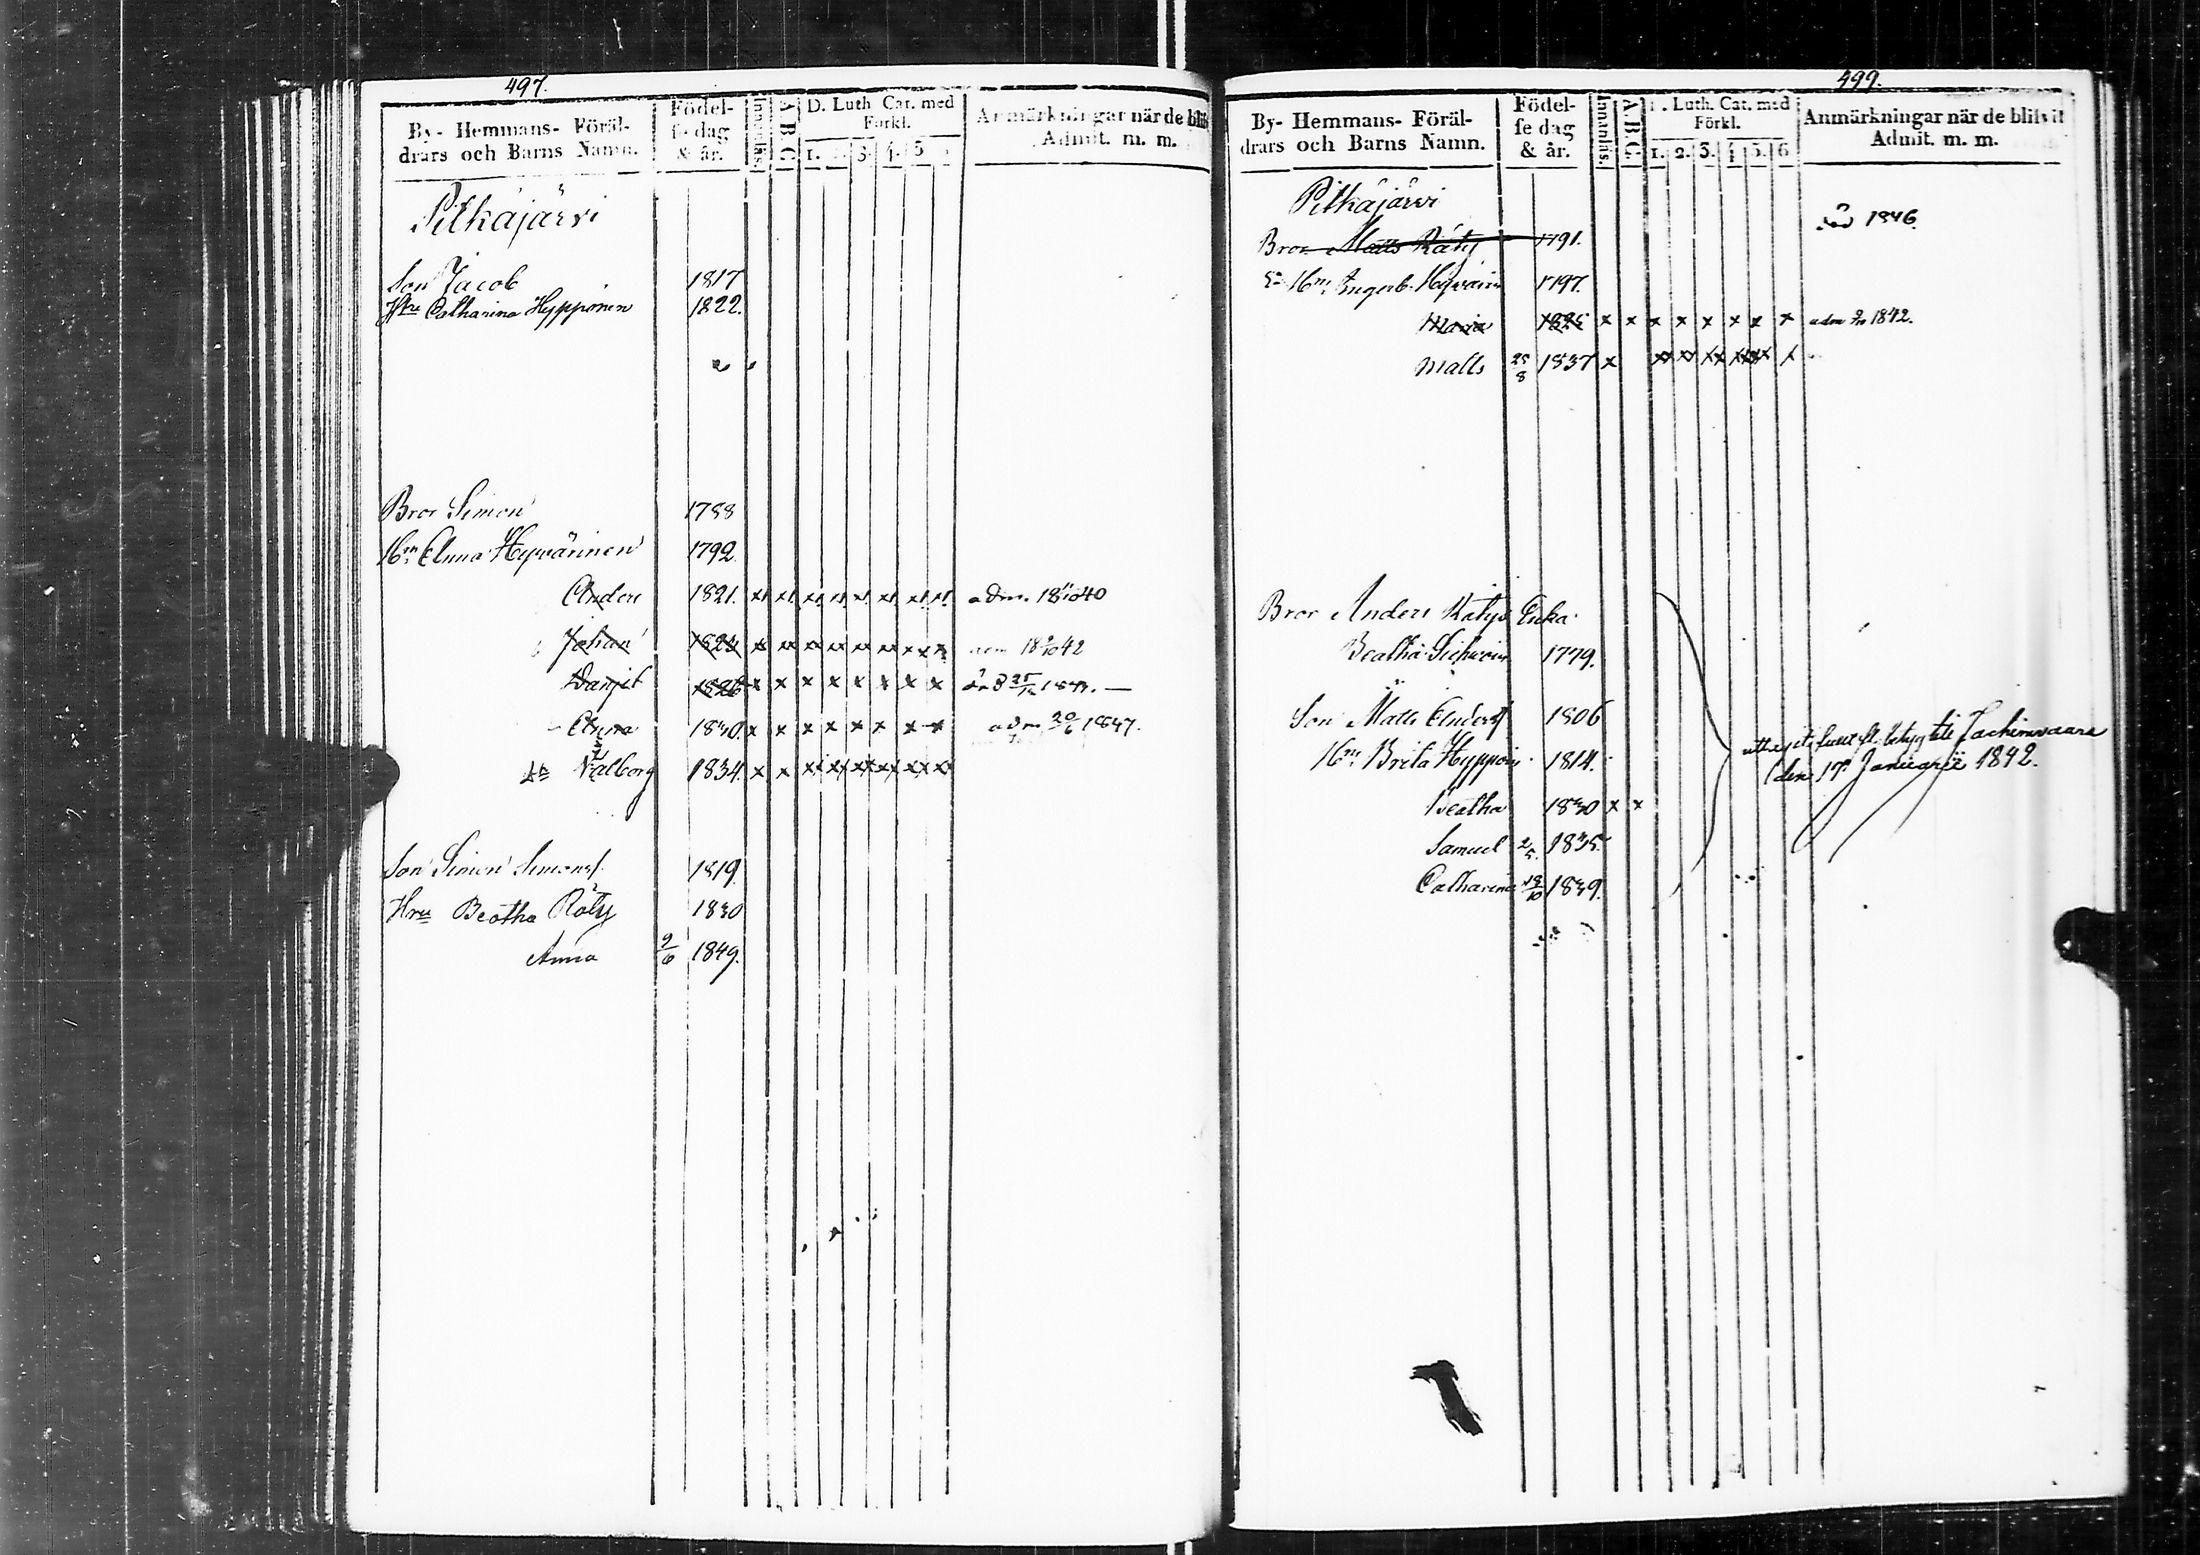 497.
By- Hemmans- Föräl-
drars och Barns Namn.
Födel-
se dag
& år.
Innanläs.
A.B.C.
D. Luth. Cat. med
Förkl.
1. 3. 4. 5
Anmärkningar när de blif
Admit. m. m.
Pitkäjärvi
Son Jacob 1817
Hru Catharina Hypponen 1822.
Bror Simon 1788
Hu Anna Hyvärinen 1792
Anders 1821. x x x x x x x x adm. 18 40
Johan 1823 x x x x x x x x adm 18 42
1826 x x x x x x x x
Anna 1830. x x x x x x x x adm 20/6 1847.
Valborg 1834. x x x x x x x x
Son Simon Simons. 1819.
Hru Beatha Räty 1830
Anna 9/6 1849.
499.
By- Hemmans- Föräl-
drars och Barns Namn.
Födel-
se dag
& år.
Innanläs.
A.B.C.
D. Luth. Cat. med
Förkl.
1. 2. 3. 4 5. 6
Anmärkningar när de blifvit
Admit. m. m.
Pitkäjärvi
död 1846.
Bror Matts Räty 1791.
Hu Ingeb. Hyvärin 1797.
Maria 1825 x x x x x x x x adm 1842.
Matts 25/8 1837 x x x x x x x
Bror Anders Rätys Enka
Beatha 1779.
Son Matts Anders 1806
Hu Brita Hyppöin 1814.
Beatha 1830 x x
Samuel 2/5. 1835.
Catharina 1839.
den 17 Januarii 1842.